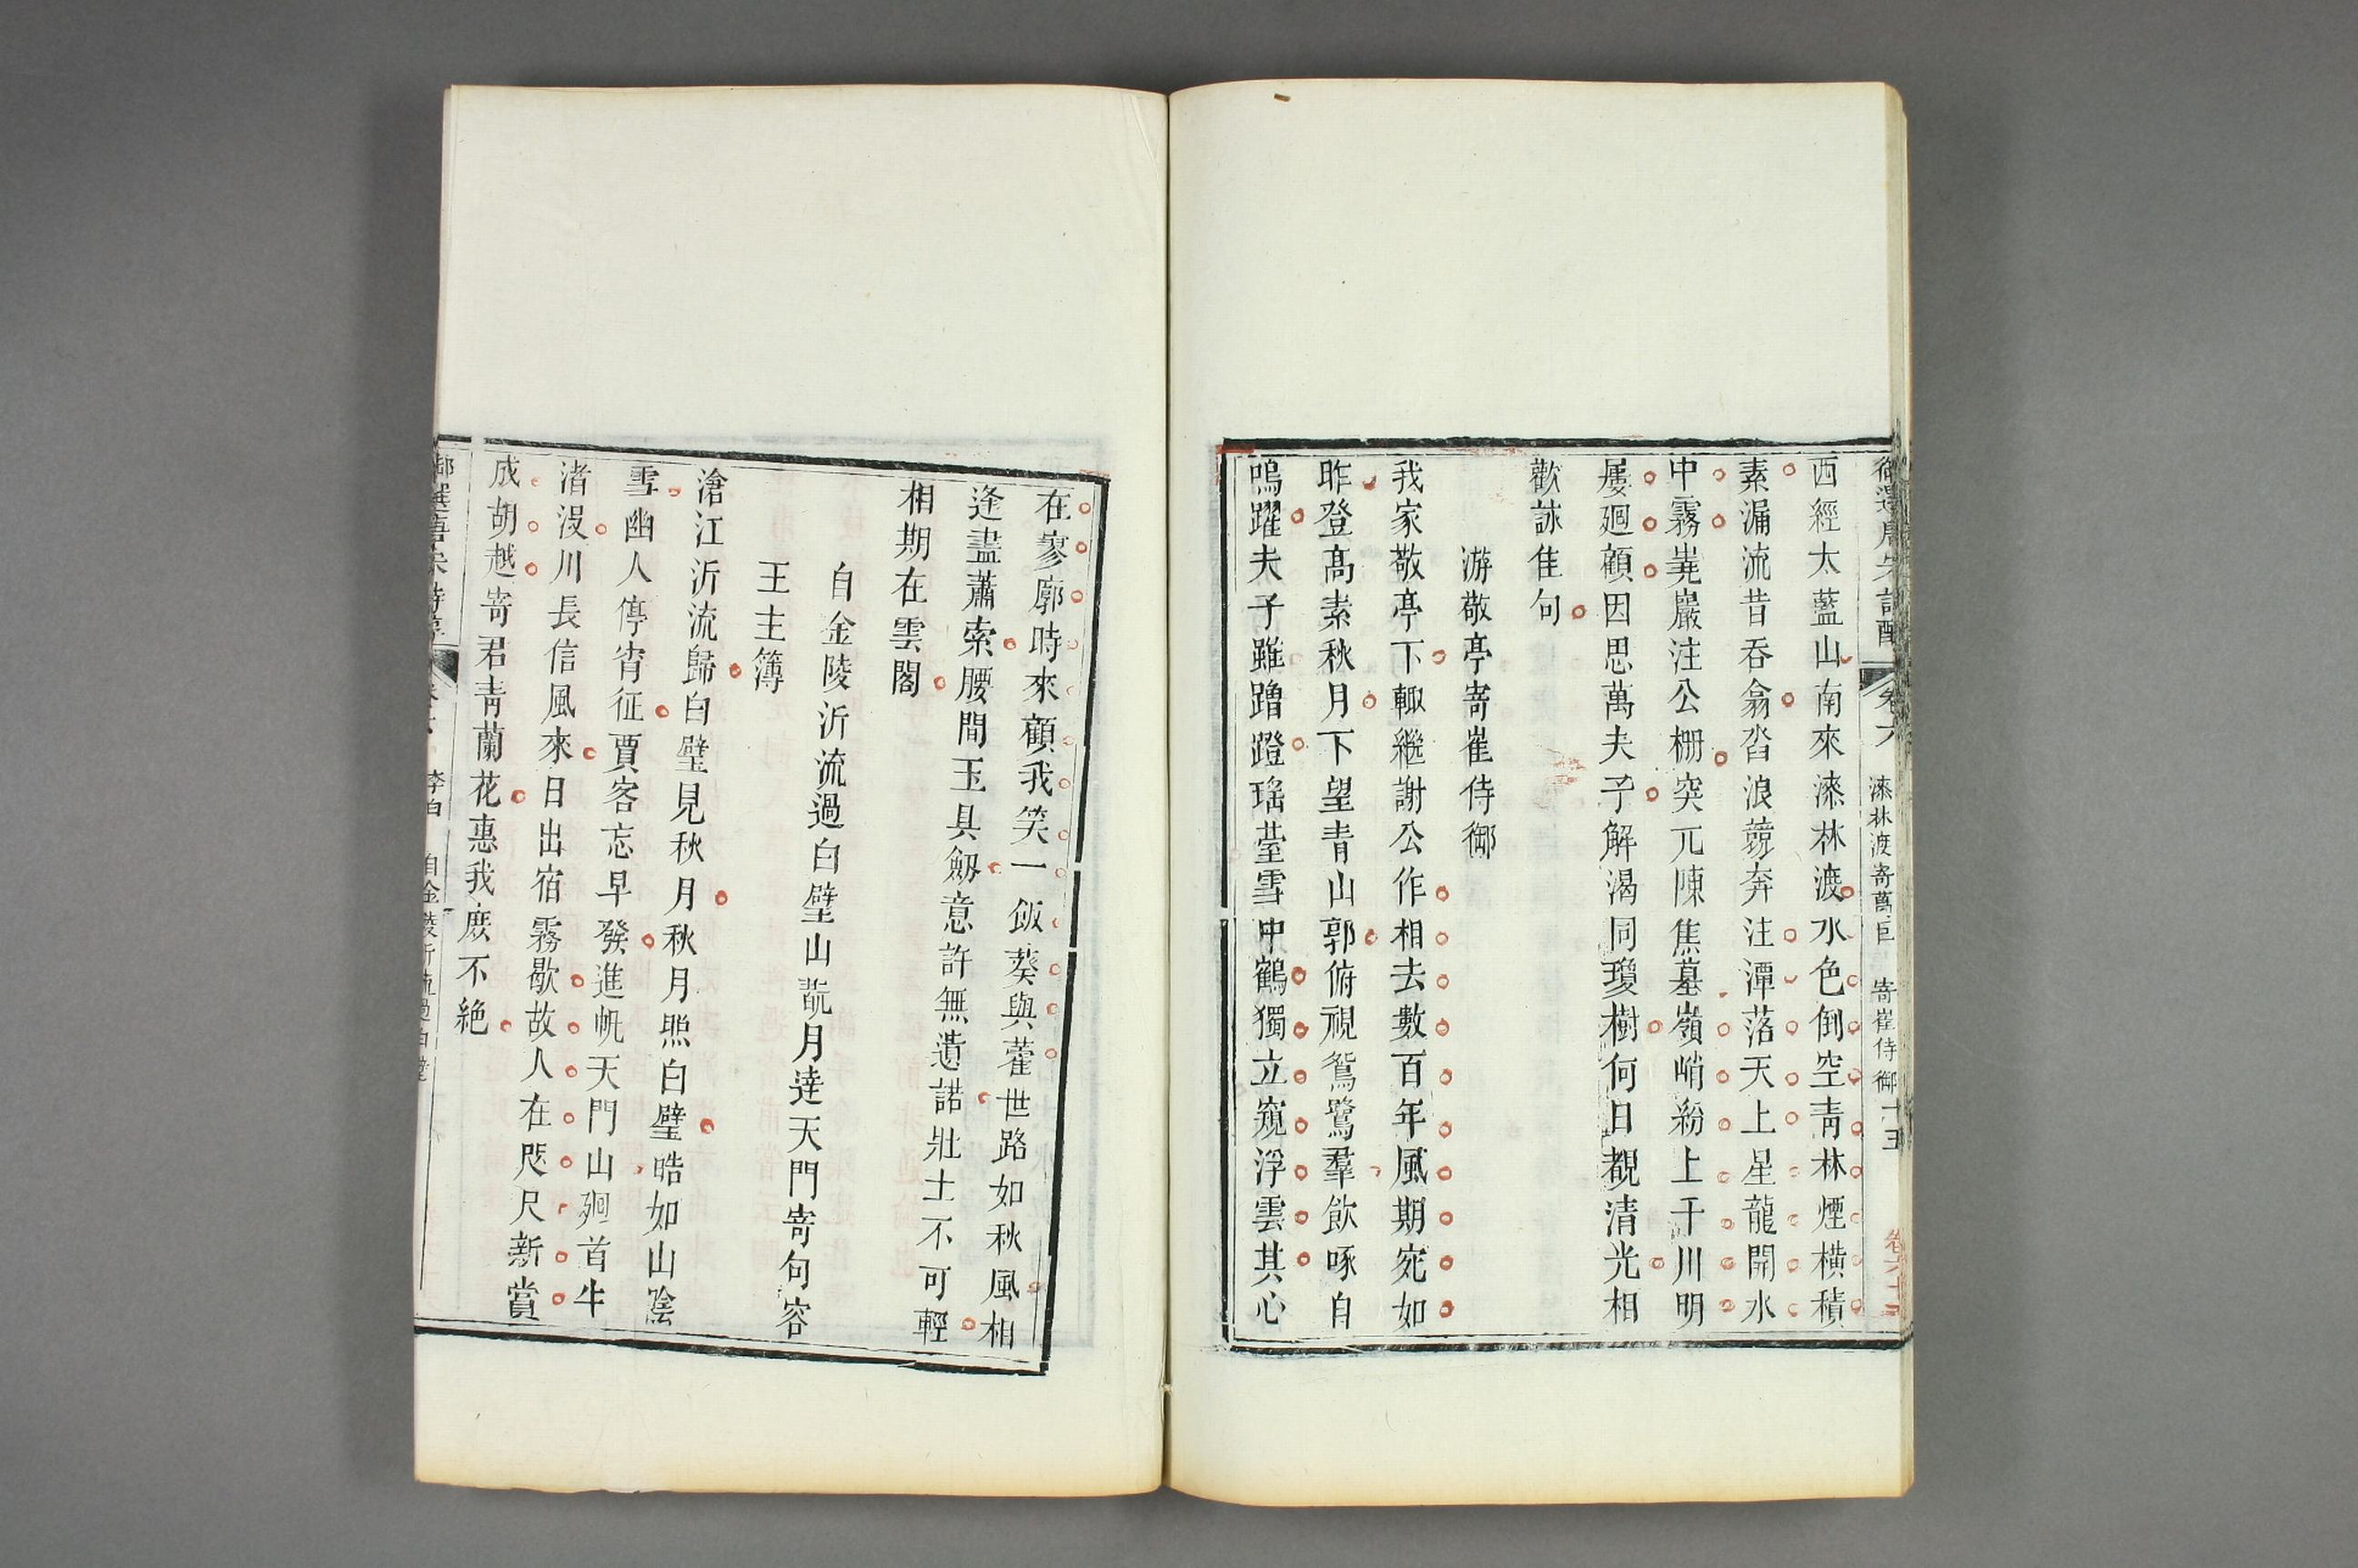 御選唐宋詩醇 卷六 漆林渡寄萬巨 寄崔侍御 十五
西經太藍山南來漆林渡水色倒空青林煙橫積
素漏流昔吞翕沓浪競奔注潭落天上星龍開水
中霧嶤巖注公柵突兀陳焦墓嶺峭紛上干川明
屢廻顧因思萬夫子解渴同瓊樹何日覩清光相
歡詠佳句
游敬亭寄崔侍御
我家敬亭下輒繼謝公作相去數百年風期宛如
昨登高素秋月下望青山郭俯視鴛鷺羣飲啄自
鳴躍夫子雖蹭蹬瑤臺雪中鶴獨立窺浮雲其心
在寥廓時來顧我笑一飯葵與藿世路如秋風相
逢盡蕭索腰間玉具劒意許無遺諾壯士不可輕
相期在雲閣
自金陵泝流過白璧山翫月達天門寄句容
王主簿
滄江泝流歸白璧見秋月秋月照白璧皓如山陰
雪幽人停宵征賈客忘早發進帆天門山廻首牛
渚沒川長信風來日出宿霧歇故人在咫尺新賞
成胡越寄君青蘭花惠我庶不絕
御選唐宋詩醇 李白 自金陵泝流過白璧